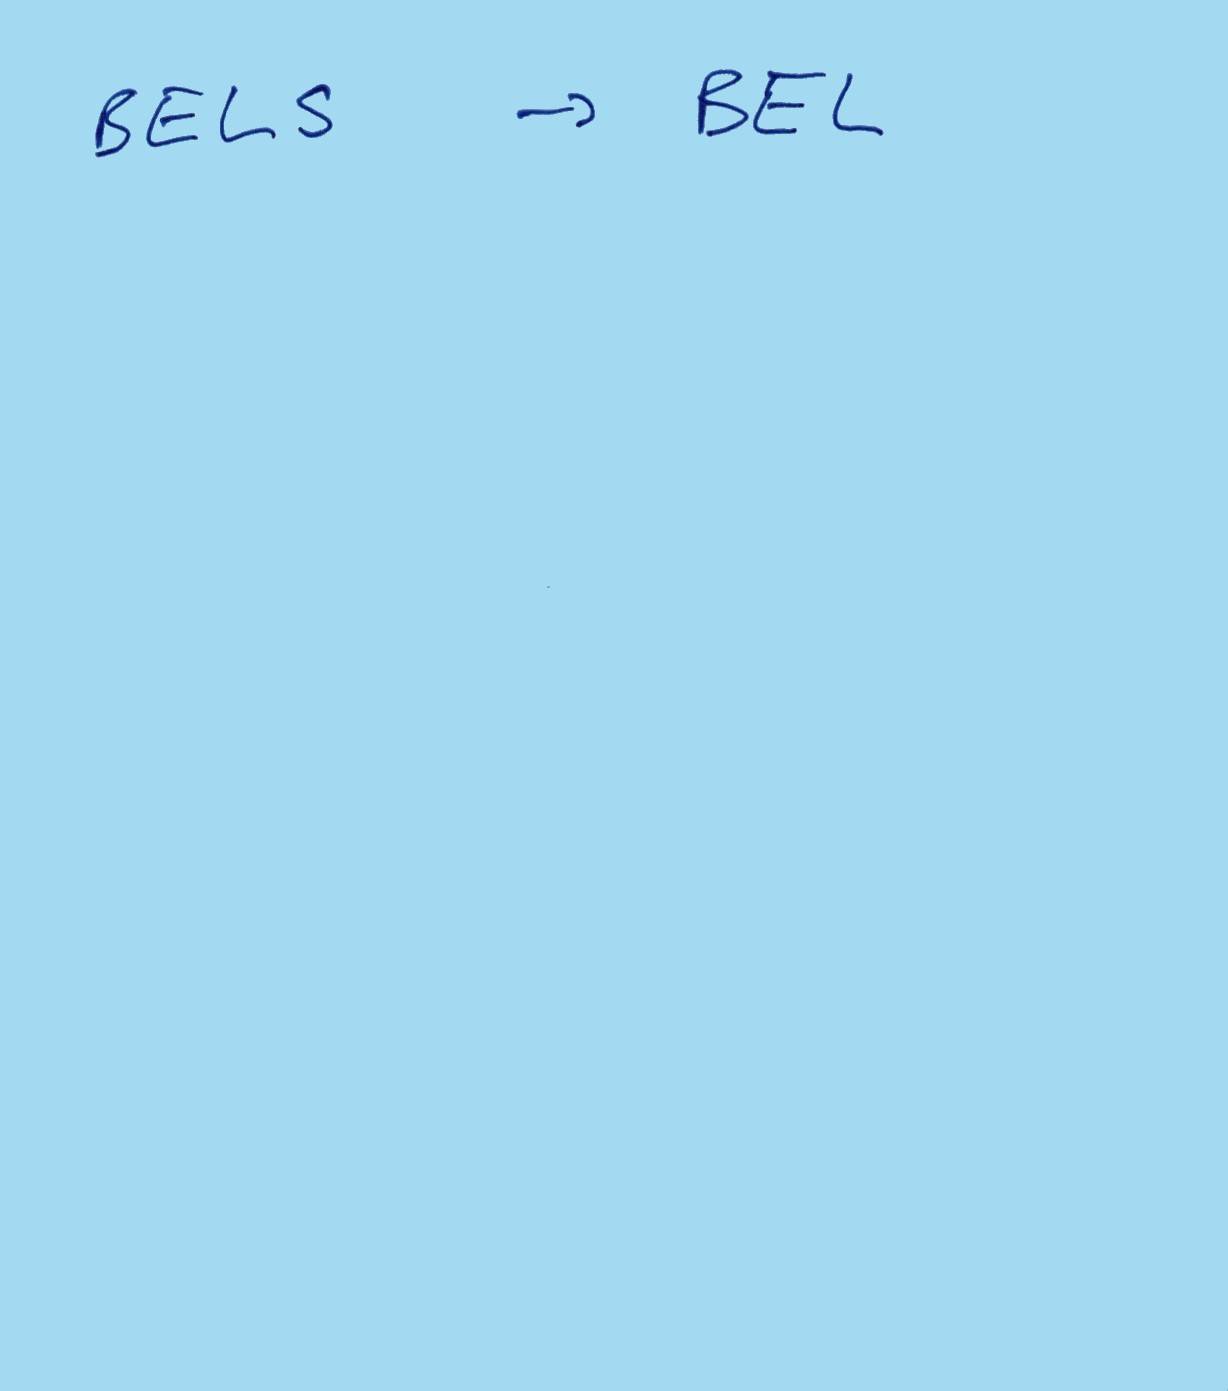 BELS → BEL